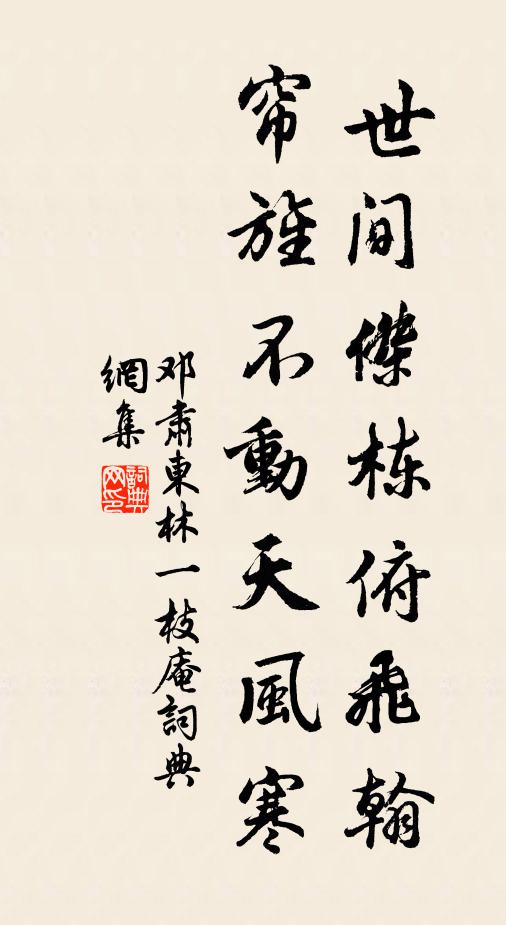 世间傑栋俯飛翰
帘旌不動天風寒
邓肅東林一枝庵詞典
網集
詞典
网印